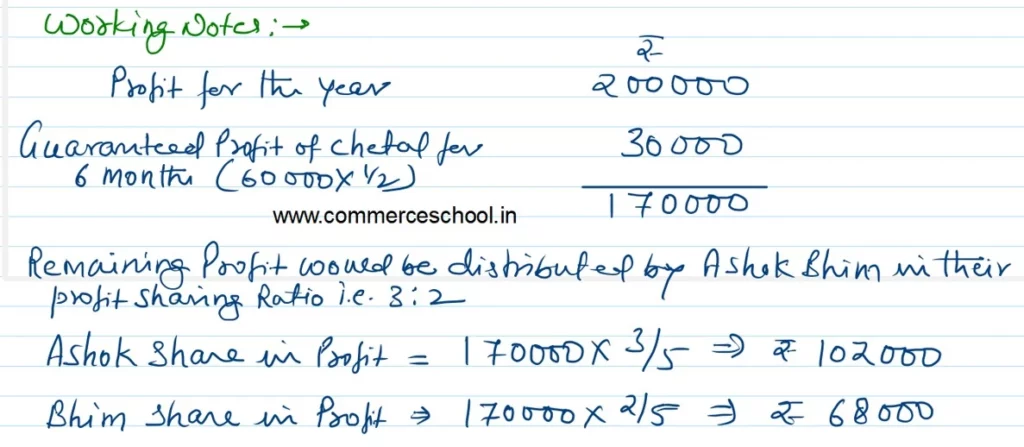 Working Notes :→
₹
Profit for the year 200000
Guaranteed Profit of Chetal for 30000
6 months (60000 x 1/2)
170000
www.commerceschool.in
Remaining Profit would be distributed by Ashok Bhim in their
profit sharing Ratio i.e. 3:2
Ashok Share in Profit = 170000 x 3/5 ⇒ ₹ 102000
Bhim Share in Profit → 170000 x 2/5 ⇒ ₹ 68000